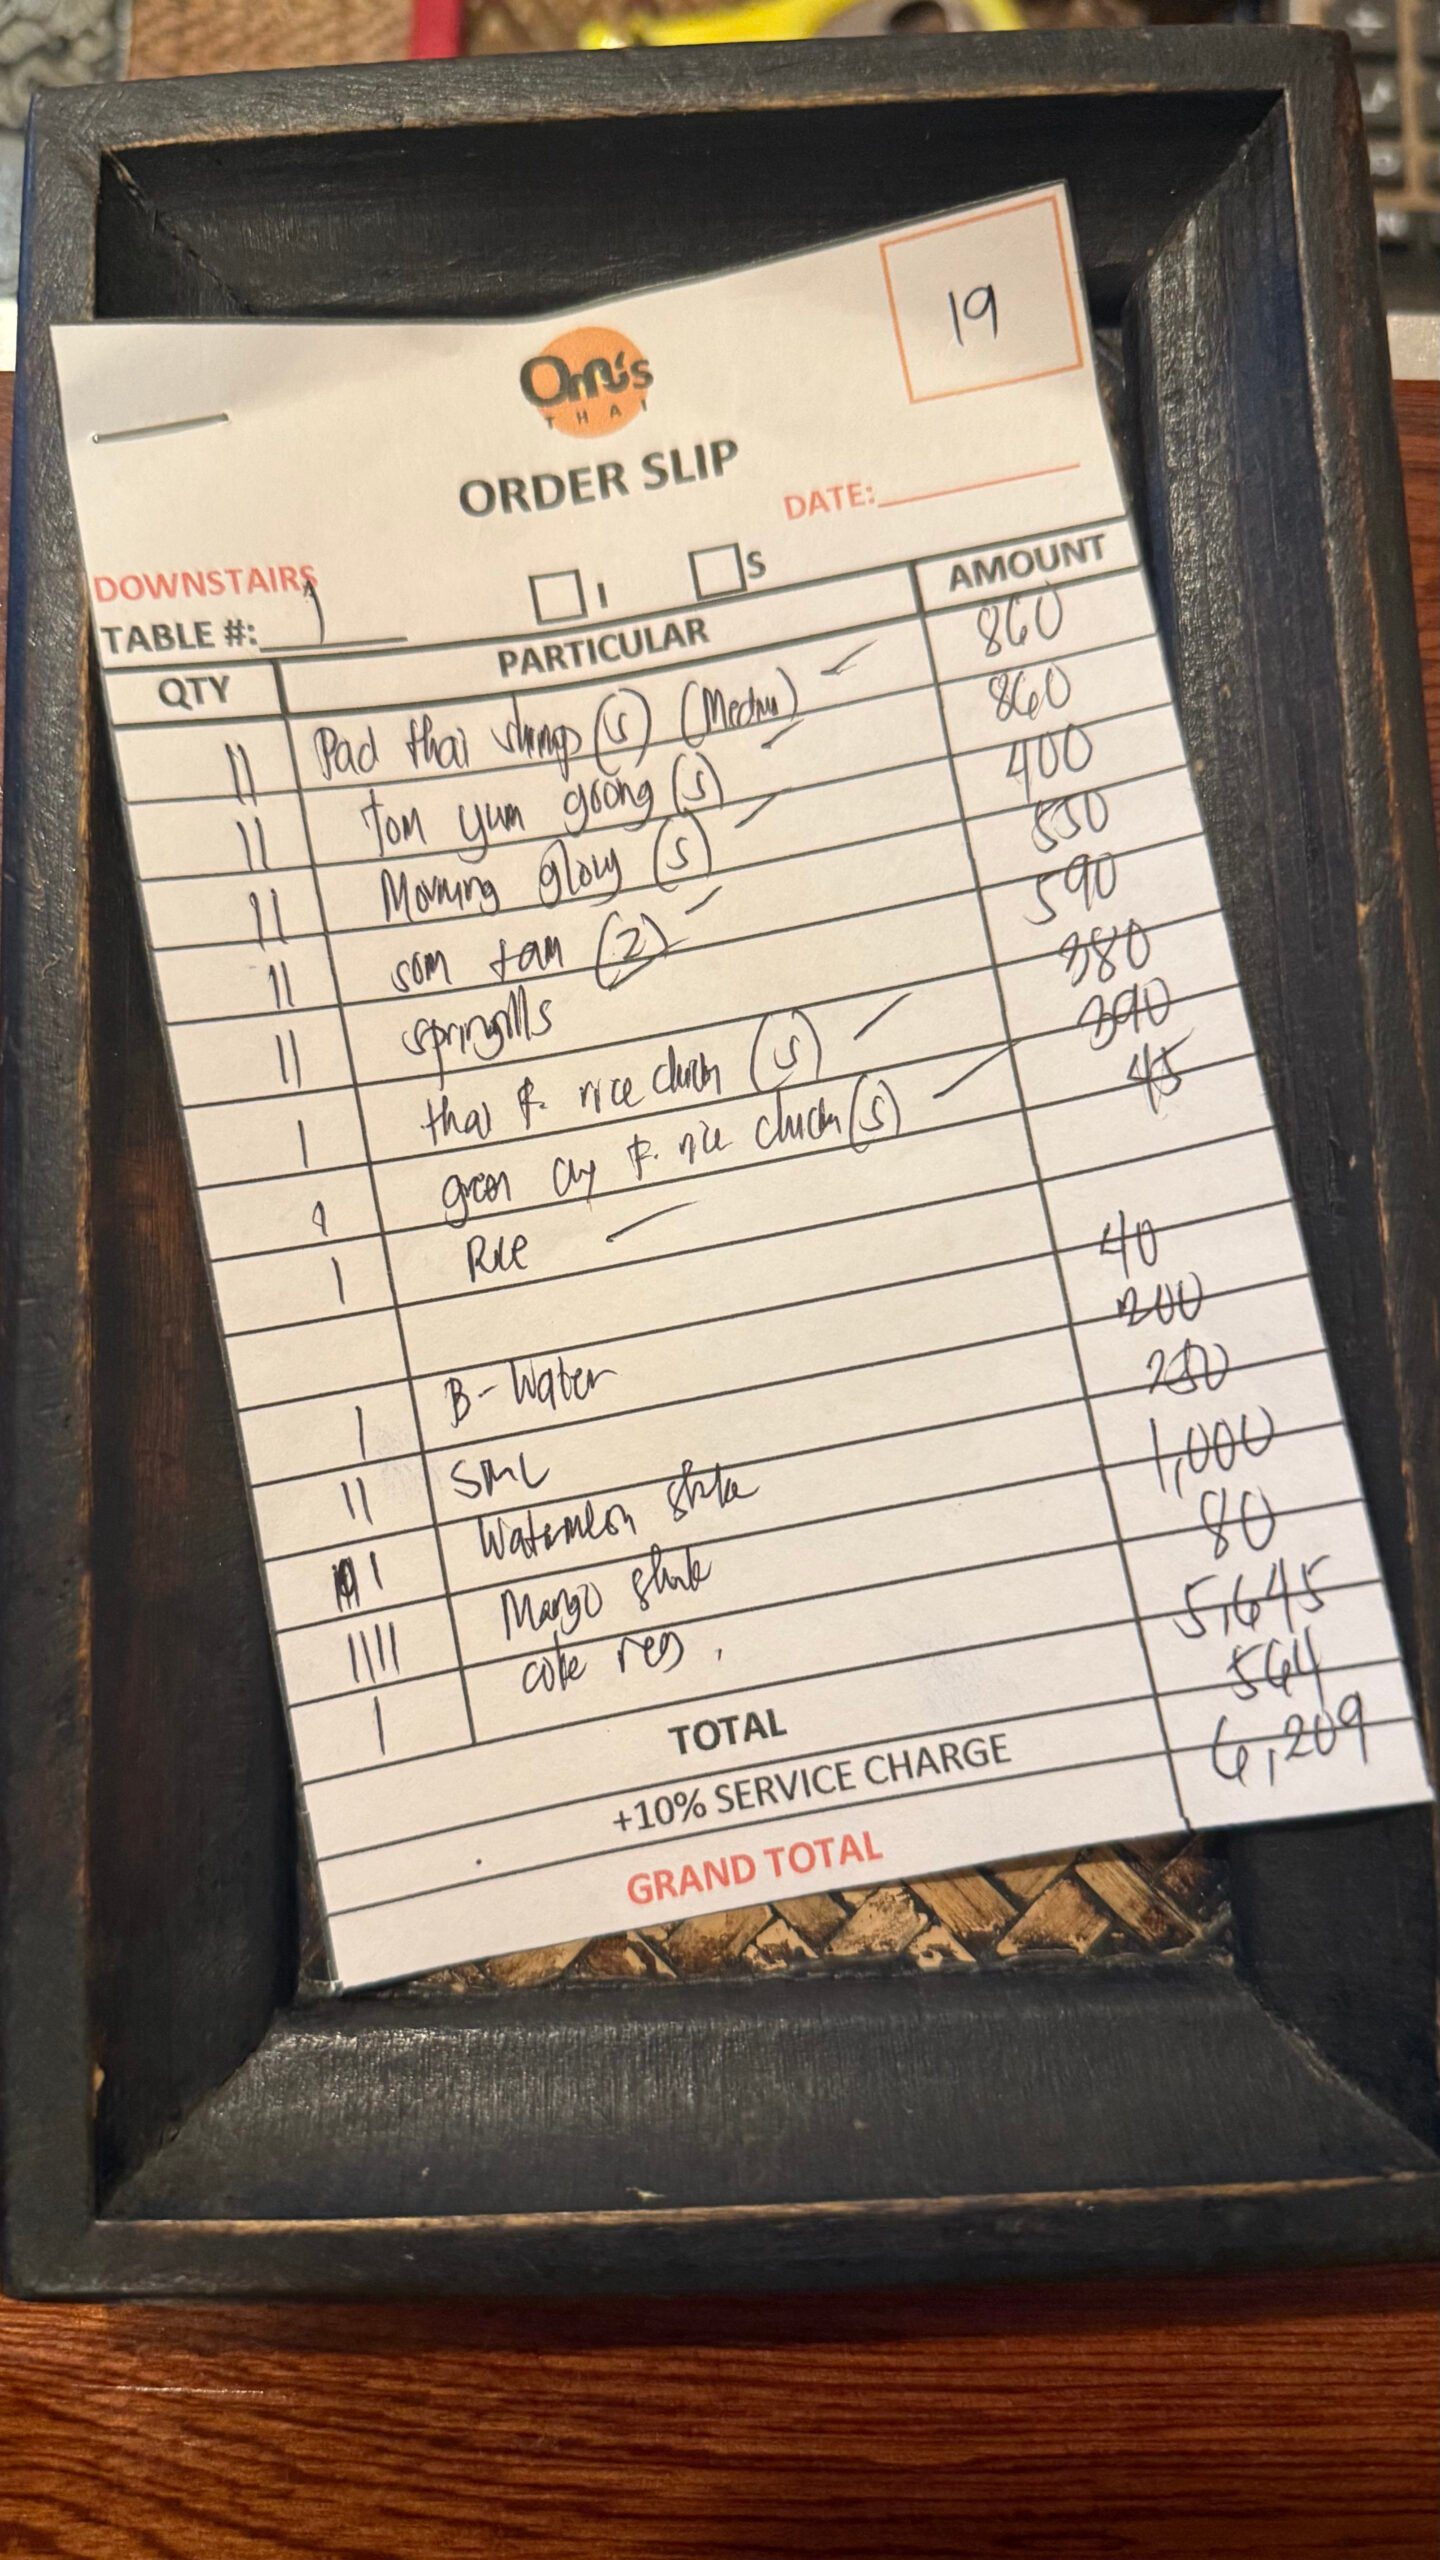 19
Om's
THAI
ORDER SLIP
DATE:
DOWNSTAIRS
I S
TABLE #: 1
QTY PARTICULAR AMOUNT
11 Pad thai shrimp (S) (Medium) 860
11 Tom yum goong (S) 860
11 Morning glory (S) 400
11 som tam (2) 550
11 springrolls 590
1 thai F. rice chicken (S) 380
1 green cury F. rice chicken (S) 390
1 Rice 45
1 B-Water 40
11 SML 200
1 Watermelon shake 250
1111 Mango shake 1,000
1 coke reg. 80
TOTAL 5,645
+10% SERVICE CHARGE 564
GRAND TOTAL 6,209